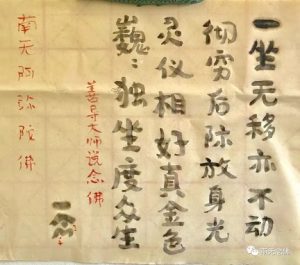 一坐无移亦不动
彻穷后际放身光
灵仪相好真金色
巍〻独坐度众生
善导大师说念佛
南无阿弥陀佛